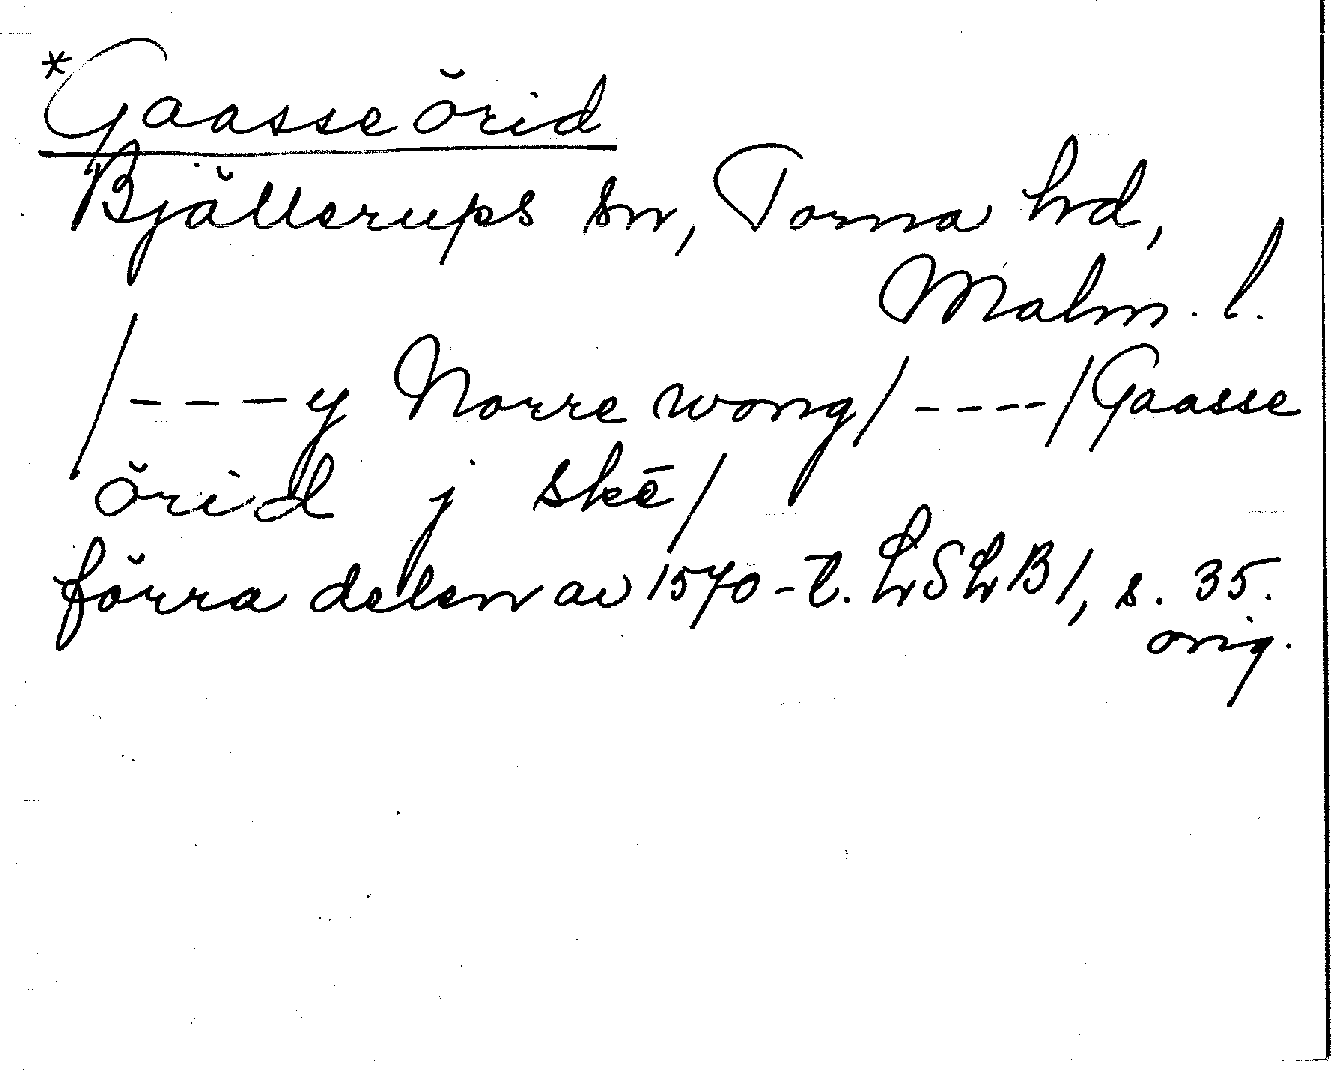 *Gaasse örid
Bjällerups sn, Torna hd,
Malm. l.
/---y Norre wong/----/Gaasse
örid j skē/
förra delen av 1570-t. LSLB1, s. 35.
orig.